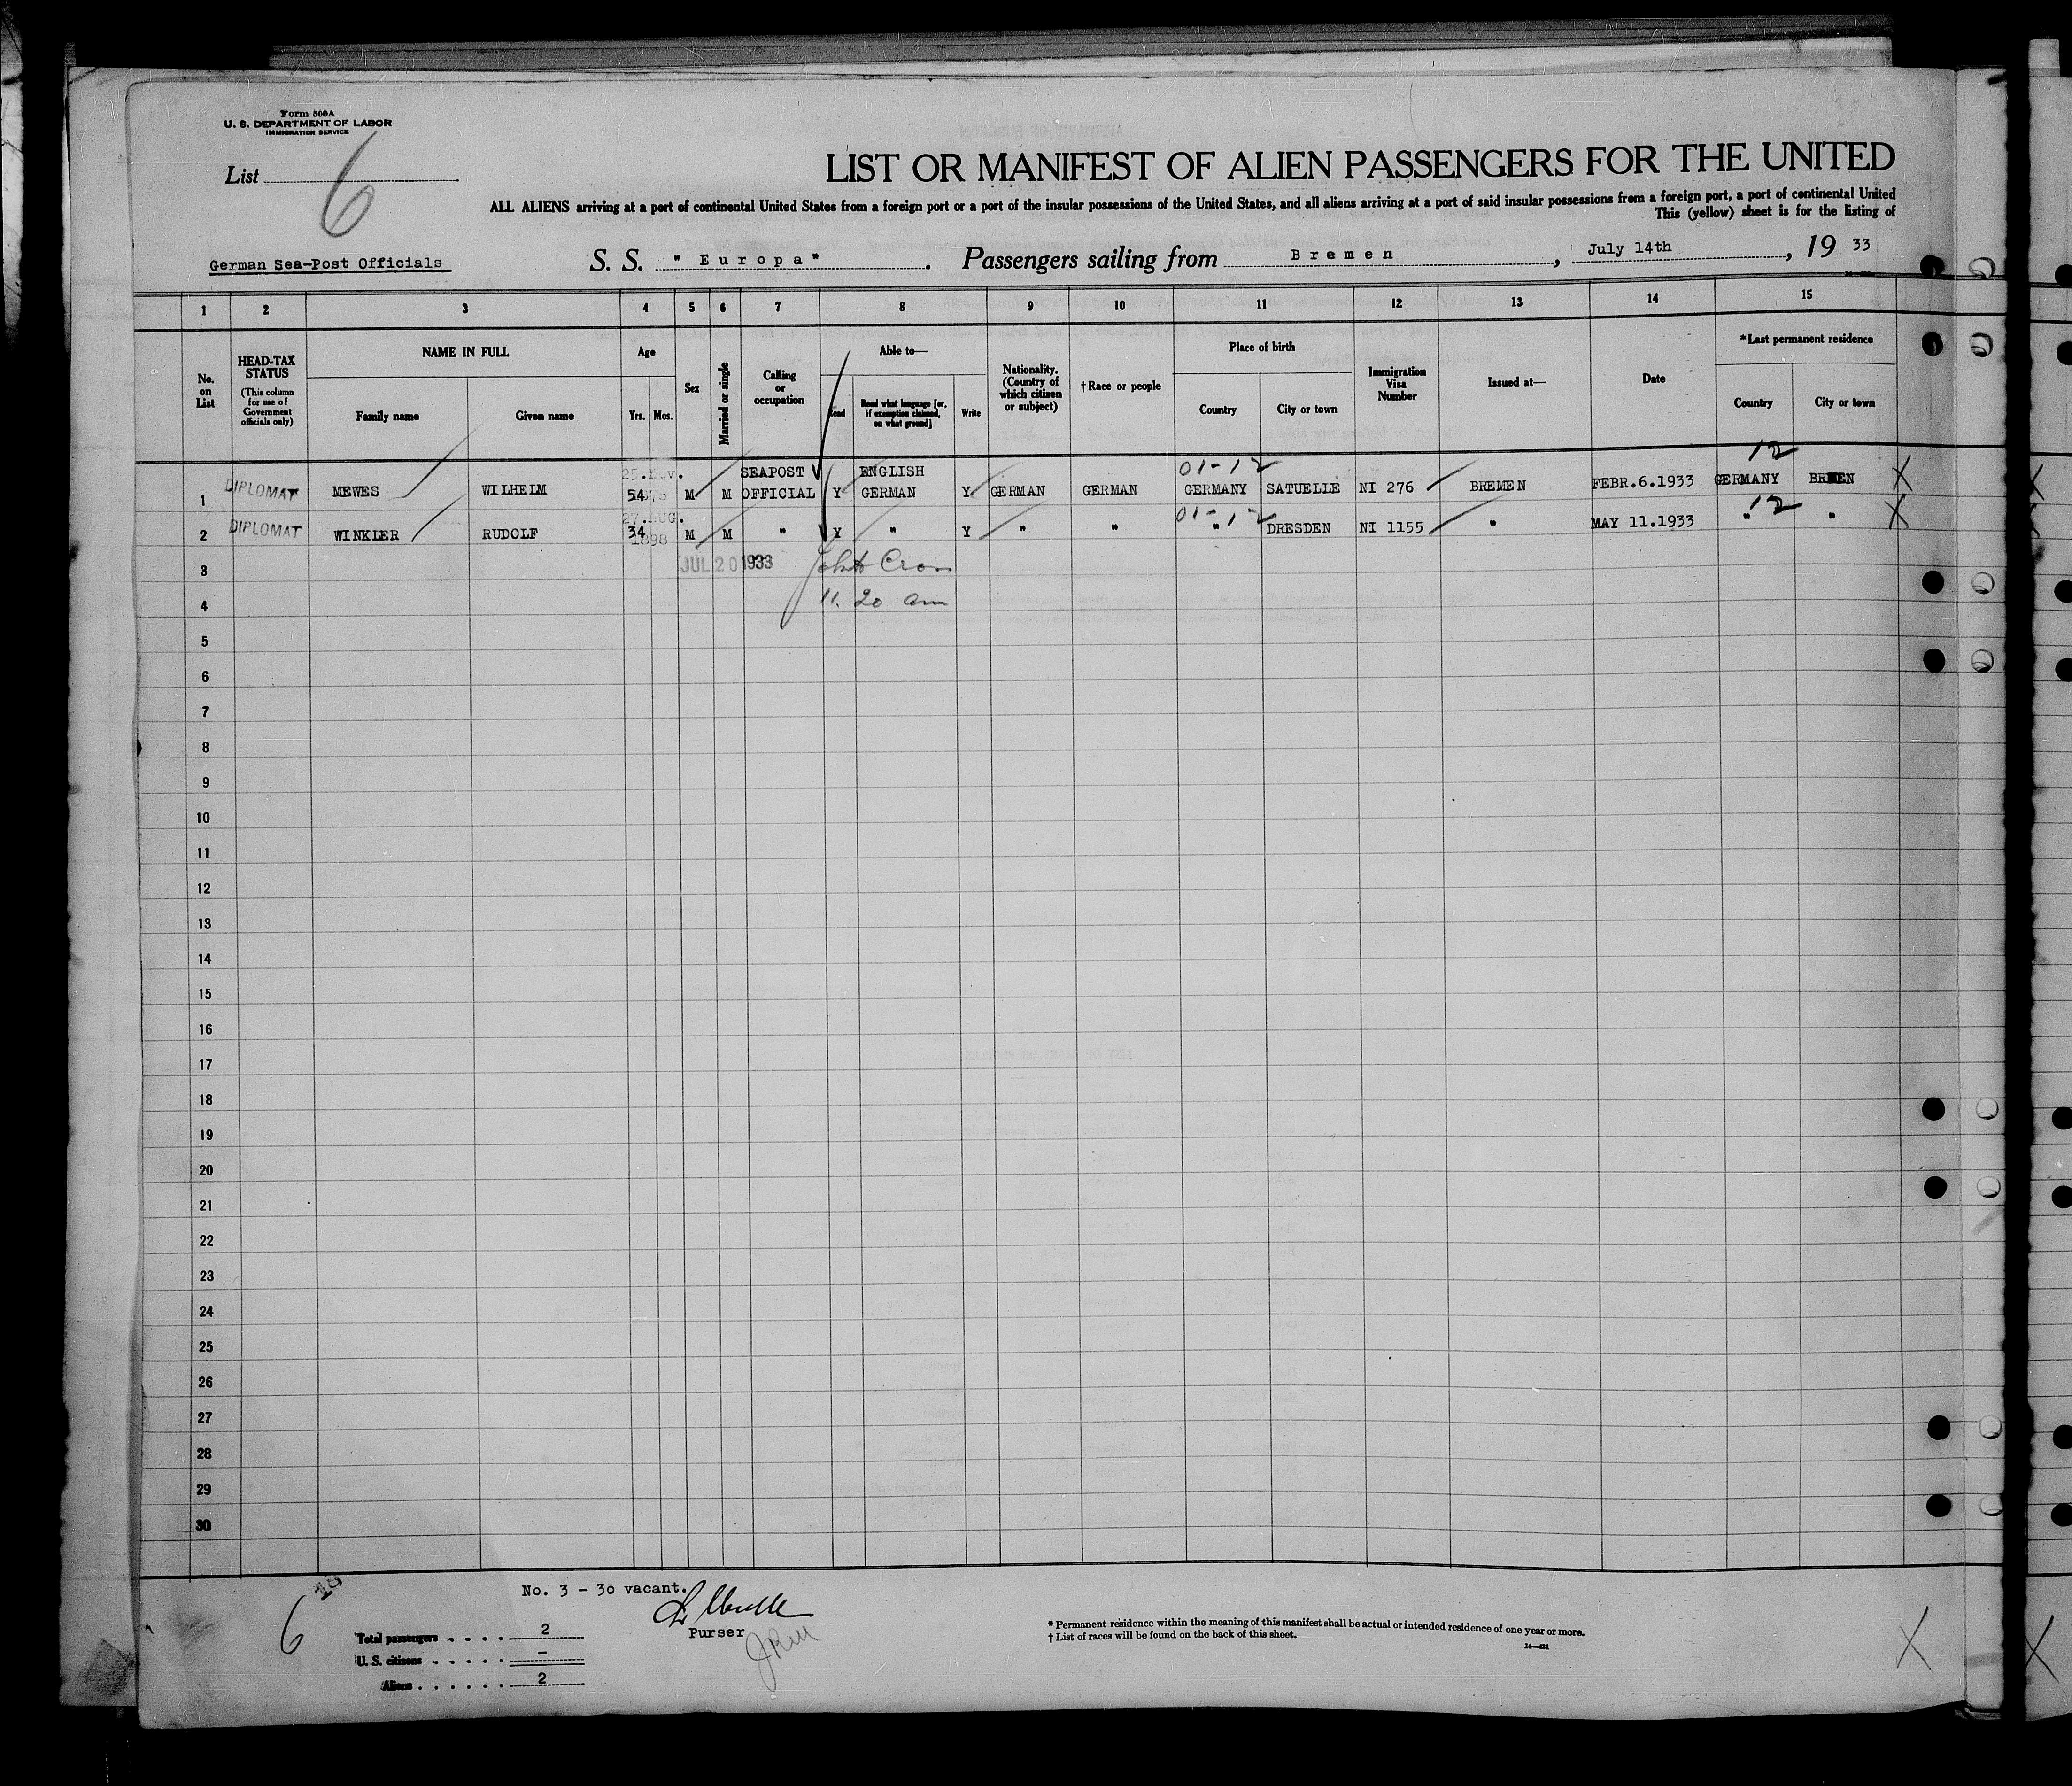 Form 500A
U. S. DEPARTMENT OF LABOR
IMMIGRATION SERVICE
List 6
LIST OR MANIFEST OF ALIEN PASSENGERS FOR THE UNITED
ALL ALIENS arriving at a port of continental United States from a foreign port or a port of the insular possessions of the United States, and all aliens arriving at a port of said insular possessions from a foreign port, a port of continental United
This (yellow) sheet is for the listing of
German Sea-Post Officials S. S. "Europa". Passengers sailing from Bremen, July 14th, 19 33
1 2 3 4 5 6 7 8 9 10 11 12 13 14 15
No. on List
HEAD-TAX STATUS
(This column for use of Government officials only)
NAME IN FULL
Family name Given name
Age
Yrs. Mos.
Sex
Married or single
Calling or occupation
Able to—
Read
Read what language [or, if exemption claimed, on what ground]
Write
Nationality. (Country of which citizen or subject)
† Race or people
Place of birth
Country City or town
Immigration Visa Number
Issued at—
Date
* Last permanent residence
Country City or town
01-12 12
1 DIPLOMAT MEWES WILHELM 54 M M SEAPOST OFFICIAL Y ENGLISH GERMAN Y GERMAN GERMAN GERMANY SATUELLE NI 276 BREMEN FEBR.6.1933 GERMANY BREMEN X
27.AUG. 01-12 12
2 DIPLOMAT WINKLER RUDOLF 34 1898 M M " Y " Y " " " DRESDEN NI 1155 " MAY 11.1933 " " X
3 JUL 20 1933
4 11.20 am
5
6
7
8
9
10
11
12
13
14
15
16
17
18
19
20
21
22
23
24
25
26
27
28
29
30
No. 3 - 30 vacant.
6
Purser
Total passengers 2
U. S. citizens -
Aliens 2
* Permanent residence within the meaning of this manifest shall be actual or intended residence of one year or more.
† List of races will be found on the back of this sheet.
X